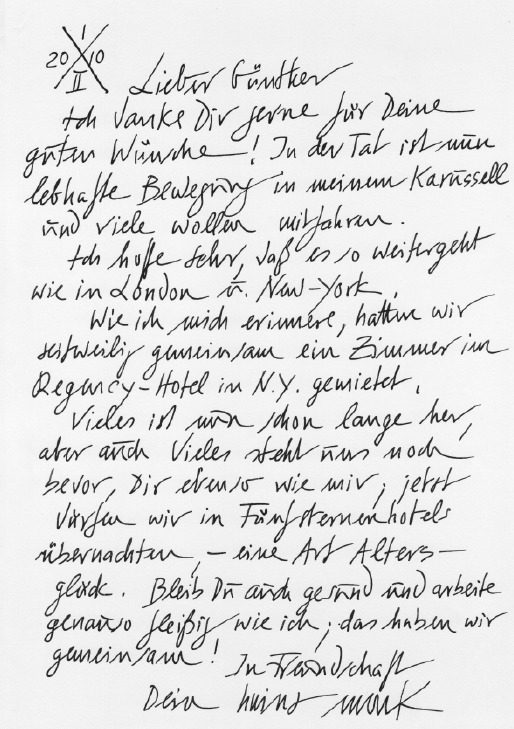 1
20 10
II
Lieber Günther
Ich danke Dir gerne für Deine
guten Wünsche! In der Tat ist nun
lebhafte Bewegung in meinem Karussell
und viele wollen mitfahren.
Ich hoffe sehr, daß es so weitergeht
wie in London u. New-York.
Wie ich mich erinnere, hatten wir
zeitweilig gemeinsam ein Zimmer im
Regency-Hotel in N.Y. gemietet.
Vieles ist nun schon lange her,
aber auch Vieles steht uns noch
bevor, Dir ebenso wie mir; jetzt
dürfen wir in Fünfsternenhotels
übernachten, – eine Art Alters–
glück. Bleib Du auch gesund und arbeite
genauso fleißig wie ich; das haben wir
gemeinsam!
In Freundschaft
Dein heinz mack